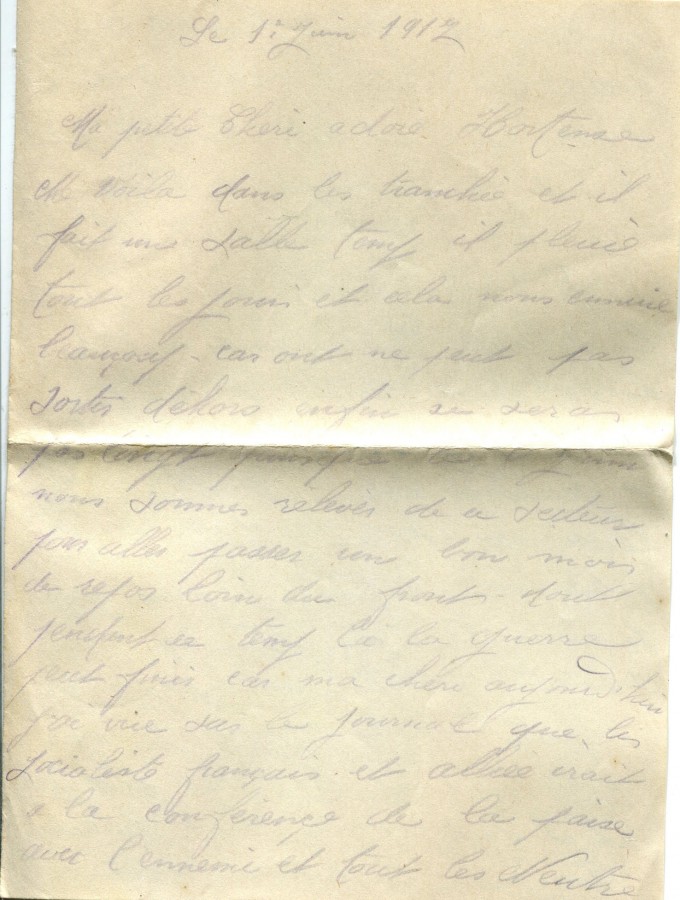 Le 1er Juin 1917
Ma petite Cheri adoré Hortense
Me voila dans les tranchée et il
fait un salle temp il pleuie
tout les jours et cela nous ennuie
car ont ne peut pas
sortir dehors enfin se seras
pas long puisque le Juin
nous sommes relevés de ce secteur
pour aller passer un bon mois
de repos loin du front dont
pendent ce temp là la guerre
peut finir car ma cheri aujourd'hui
j'ai vue sur le journal que les
socialiste français et alliée irait
a la conférence de la paise
avec l'ennemi et tout les Neutre